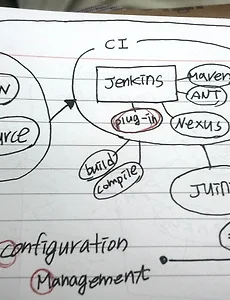 CI
Jenkins
Maven
ANT
plug-in
Nexus
build
compile
Configuration
Management